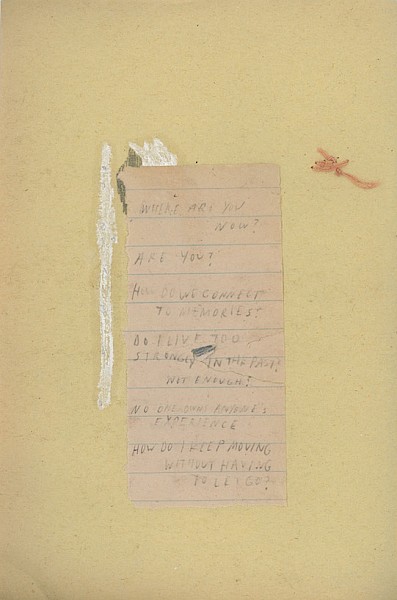 WHERE ARE YOU
NOW?
ARE YOU?
HOW DO WE CONNECT
TO MEMORIES?
DO I LIVE TOO
STRONGLY IN THE PAST?
NOT ENOUGH?
NO ONE OWNS ANYONE'S
EXPERIENCE
HOW DO I KEEP MOVING
WITHOUT HAVING
TO LET GO?